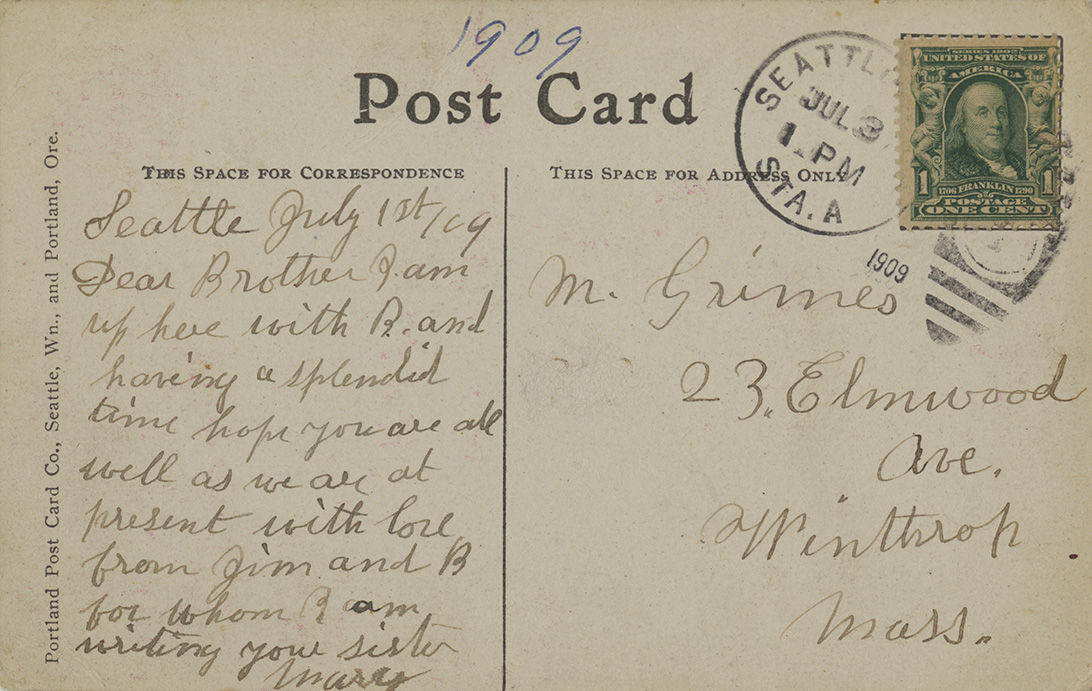 1909
Post Card
SEATTL
JUL 3
1 PM
STA. A
1909
SERIES 1902
UNITED STATES OF
AMERICA
1 1706 FRANKLIN 1790 1
POSTAGE
ONE CENT
THIS SPACE FOR CORRESPONDENCE
THIS SPACE FOR ADDRESS ONLY
Portland Post Card Co., Seattle, Wn., and Portland, Ore.
Seattle July 1st/09
Dear Brother I am
up here with B. and
having a splendid
time hope you are all
well as we are at
present with love
from Jim and B
for whom I am
writing your sister
Mary
M. Grimes
23. Elmwood
Ave.
Winthrop
Mass.